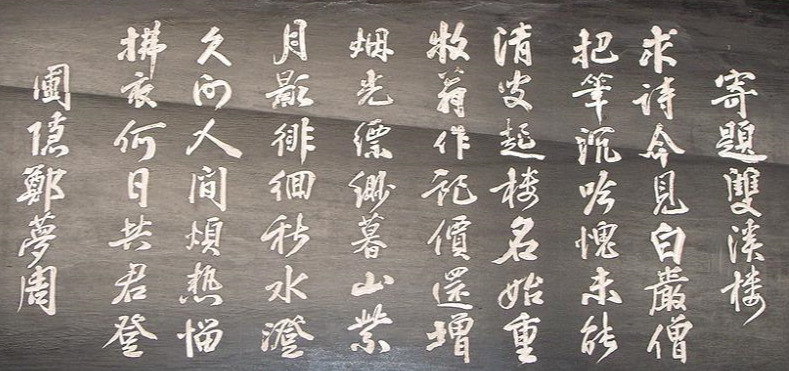 寄題雙溪楼
求詩今見白嚴僧
把筆沉吟愧未能
清叟起楼名始重
牧翁作記價還增
烟光縹緲暮山紫
月影徘徊秋水澄
久向人間煩熱惱
拂衣何日共君登
圃隱鄭夢周